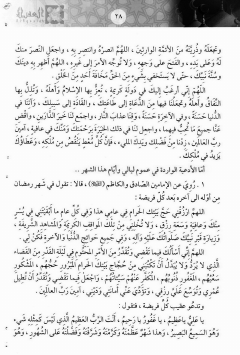 ٢٨
وتجعله وذريته من الأئمة الوارثين ، اللهم انصره وانتصر به ، واجعل النصر منك
له وعلى يده ، والفتح على وجهه ، ولا توجه الأمر إلى غيره ، اللهم أظهر به دينك
وسنة نبيك ، حتى لا يستخفي بشيء من الحق مخافة أحد من الخلق .
اللهم إني أرغب إليك في دولة كريمة ، تعز بها الإسلام وأهله ، وتذل بها
النفاق وأهله ، وتجعلنا فيها من الدعاة إلى طاعتك ، والقادة إلى سبيلك ، وآتنا في
الدنيا حسنة ، وفي الآخرة حسنة ، وقنا عذاب النار ، واجمع لنا خير الدارين ، واقض
عنا جميع ما تحب فيهما ، واجعل لنا في ذلك الخيرة برحمتك ومنك في عافية ، آمين
رب العالمين ، زدنا من فضلك ويدك الملأى ، فإن كل معط ينقص من ملكه ، وعطاؤك
يزيد في ملكك .
أما الأدعية الواردة في عموم ليالي وأيام هذا الشهر ..
١ . روي عن الإمامين الصادق والكاظم (عليهما السلام) قالا : تقول في شهر رمضان
من أوله الى آخره بعد كل فريضة :
اللهم ارزقني حج بيتك الحرام في عامي هذا وفي كل عام ما أبقيتني في يسر
منك وعافية وسعة رزق ، ولا تخلني من تلك المواقف الكريمة والمشاهد الشريفة ،
وزيارة قبر نبيك صلواتك عليه وآله ، وفي جميع حوائج الدنيا والآخرة فكن لي .
اللهم إني أسألك فيما تقضي وتقدر من الأمر المحتوم في ليلة القدر من القضاء
الذي لا يرد ولا يبدل أن تكتبني من حجاج بيتك الحرام المبرور حجهم ، المشكور
سعيهم ، المغفور ذنوبهم ، المكفر عنهم سيئاتهم ، واجعل فيما تقضي وتقدر أن تطيل
عمري وتوسع علي رزقي ، وتؤدي عني أمانتي وديني ، آمين رب العالمين .
وتدعو عقيب كل فريضة ، فتقول :
يا علي يا عظيم ، يا غفور يا رحيم ، أنت الرب العظيم الذي ليس كمثله شيء
وهو السميع البصير ، وهذا شهر عظمته وكرمته وشرفته وفضلته على الشهور ، وهو